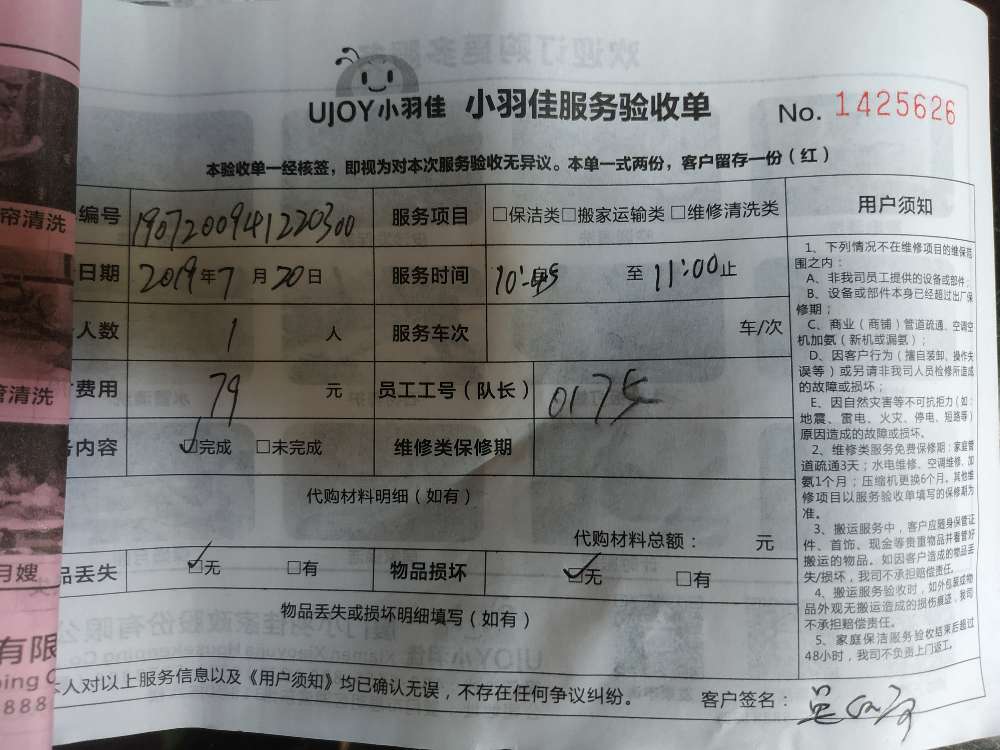 UJOY小羽佳 小羽佳服务验收单 No. 1425626
本验收单一经核签，即视为对本次服务验收无异议。本单一式两份，客户留存一份（红）
编号 190720094122030 服务项目 □保洁类□搬家运输类□维修清洗类
日期 2019年7月20日 服务时间 至 11:00止
人数 1 人 服务车次 车/次
费用 79 元 员工工号（队长） 0175
内容 ☑完成 □未完成 维修类保修期
代购材料明细（如有）
代购材料总额： 元
品丢失 ☑无 □有 物品损坏 ☑无 □有
物品丢失或损坏明细填写（如有）
人对以上服务信息以及《用户须知》均已确认无误，不存在任何争议纠纷。 客户签名：
用户须知
1、下列情况不在维修项目的维保范
围之内：
A、非我司员工提供的设备或部件；
B、设备或部件本身已经超过出厂保
修期；
C、商业（商铺）管道疏通、空调空
机加氨（新机或漏氨）；
D、因客户行为（擅自装卸、操作失
误等）或另请非我司人员检修所造成
的故障或损坏；
E、因自然灾害等不可抗拒力（如：
地震、雷电、火灾、停电、短路等）
原因造成的故障或损坏。
2、维修类服务免费保修期：家庭管
道疏通3天；水电维修、空调维修、加
氨1个月；压缩机更换6个月。其他维
修项目以服务验收单填写的保修期为
准。
3、搬运服务中，客户应随身保管证
件、首饰、现金等贵重物品并看管好
搬运的物品。如因客户造成的物品丢
失/损坏，我司不承担赔偿责任。
4、搬运服务验收时，如外包装或物
品外观无搬运造成的损伤痕迹，我司
不承担赔偿责任。
5、家庭保洁服务验收结束后超过
48小时，我司不负责上门返工。
帘清洗
管清洗
月嫂
有限
ping C
888